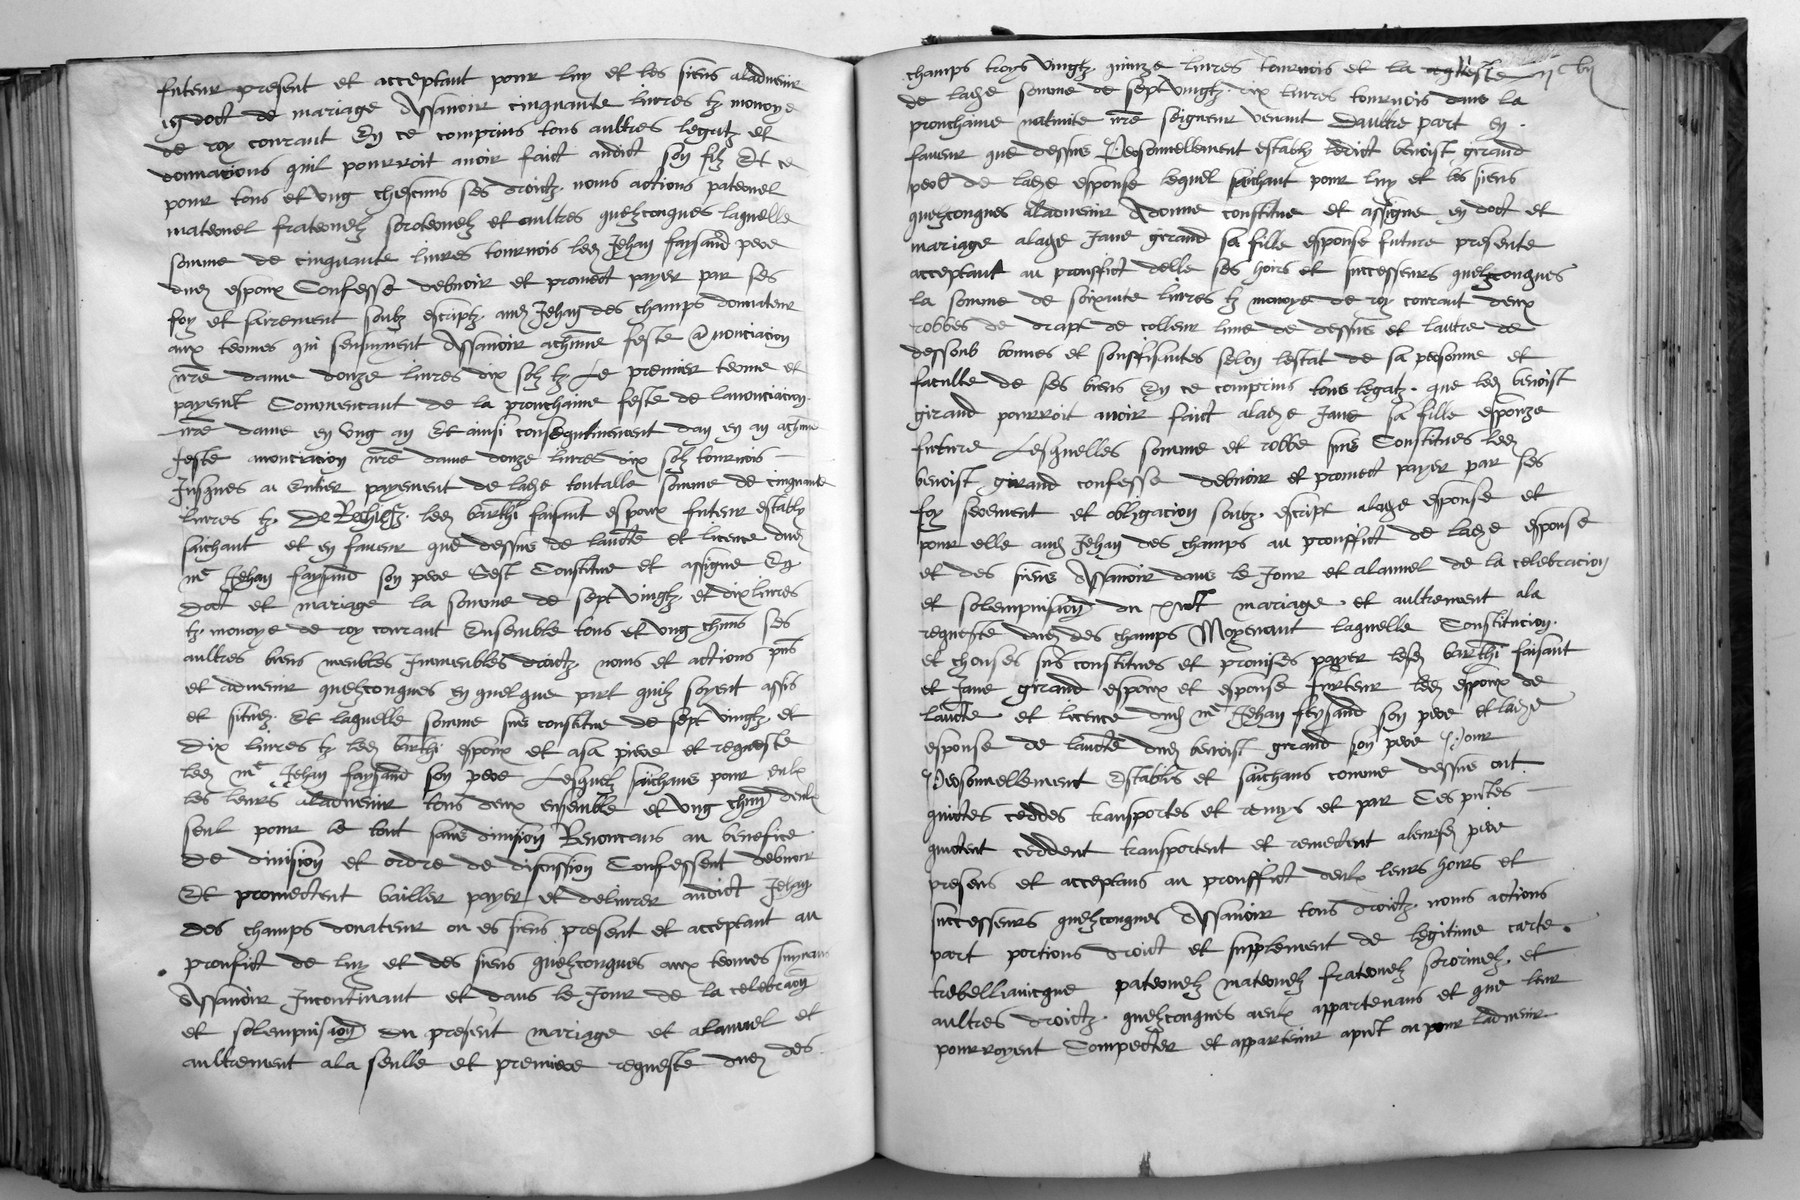 futeur present et acceptant pour luy et les siens aladvenir
en doct de mariage Assavoir cinquante livres tz monoye
de roy courant En ce comprins tous aultres legatz et
donnacions quil pourroit avoir faict audict son filz Et ce
pour tous et ung chescuns ses droictz noms actions paternel
maternel fraternelz sororenelz et aultres quelzconques laquelle
somme de cinquante livres tournois led Jehan faysand pere
dud espoux Confesse debvoir et promect payer par ses
foy et serement soubz escriptz aud Jehan des champs donnateur
aux termes qui sensuyvent Assavoir achune feste anonciacion
nre dame douze livres dix solz tz Le premier terme et
payent Commencant de la prouchaine feste de lanonciacion
nre dame en ung an Et ainsi consequtivement dan en an achune
feste anonciacion nre dame douze livres dix solz tournois
Jusques au entier payement de lade toutalle somme de cinquante
livres tz De Rechiefz led barthi faisant espoux futeur estably
saichant et en faveur que dessus de laucte et licence dud
me Jehan faysand son pere Sest Constitue et assigne En
doct et mariage la somme de sept vingtz et dix livres
tz monoye de roy courant Ensemble tous et ung chuns ses
aultres biens meubles Inmeubles droictz noms et actions pns
et advenir quelzconques en quelque part quilz soyent assis
et situez Et laquelle somme sus constitue de sept vingtz et
dix livres tz led barthi espoux et asa priere et requeste
led me Jehan faysand son pere Lesquelz saichans pour eulx
les leurs aladvenir tous deux ensemble et ung chun deulx
seul pour le tout sans division Renoncans au benefice
De division et ordre de discussion Confessent debvoir
Et promectent bailler payer et delivrer audict Jehan
des champs donateur ou es siens present et acceptant au
proufict de luy et des siens quelzconques aux termes suyvans
Assavoir Incontinant et dans le Jour de la celebracion
et solempnisacion du present mariage et alanuel et
aultrement ala seulle et premiere requeste dud des
champs troys vingtz quinze livres tournois et la reqte reste iic lvii
de lade somme de sept vingtz dix livres tournois dans la
prouchaine nativite nre seigneur venant Daultre part en
faveur que dessus Personnellement estably ledict benoist girand
pere de lade espouse lequel saichant pour luy et les siens
quelzconques aladvenir Adonne constitue et assigne en doct et
mariage alade Jane girand sa fille espouse future presente
acceptant au prouffict delle ses hoirs et successeurs quelzconques
la somme de soixante livres tz monoye de roy courant deux
robbes de drapt de colleur lune de dessus et lautre de
dessoub bonnes et souffisantes selon lestat de sa personne et
faculte de ses biens En ce comprins tous legatz que led benoist
girand pourroit avoir faict alade Jane sa fille espouze
future Lesquelles somme et robbe sus Constitues led
benoist girand confesse debvoir et promect payer par ses
foy serement et obligacion soubz escript alade espouse et
pour elle aud Jehan des champs au prouffict de lade espouse
et des siens Assavoir dans le Jour et alannel de la celebracion
et solempnisacion du pnt mariage et aultrement ala
requeste dud des champs Moyenant laquelle Constitucion
et chouses sus constitues et promises payer lesd barthi faisant
et Jane girand espoux et espouse futeur led espoux de
laucte et licence dud me Jehan feysand son pere et lade
espouse de laucte dud benoist girand son pere Pour
Personnellement Establis et saichans comme dessus ont
quictes ceddes transportes et remys et par Ces pntes
quictent ceddent transportent et remectent aleursd pere
presens et acceptans au prouffict deulx leurs hoirs et
successeurs quelzconques Assavoir tous droictz noms actions
part portions droict et supplement de legitime carte
trebellianicque paternelz maternelz fraternelz sororinelz et
aultres droictz quelzconques aeulx appartenans et que leur
pourroyent Compecter et appartenir apnt ou pour ladvenir